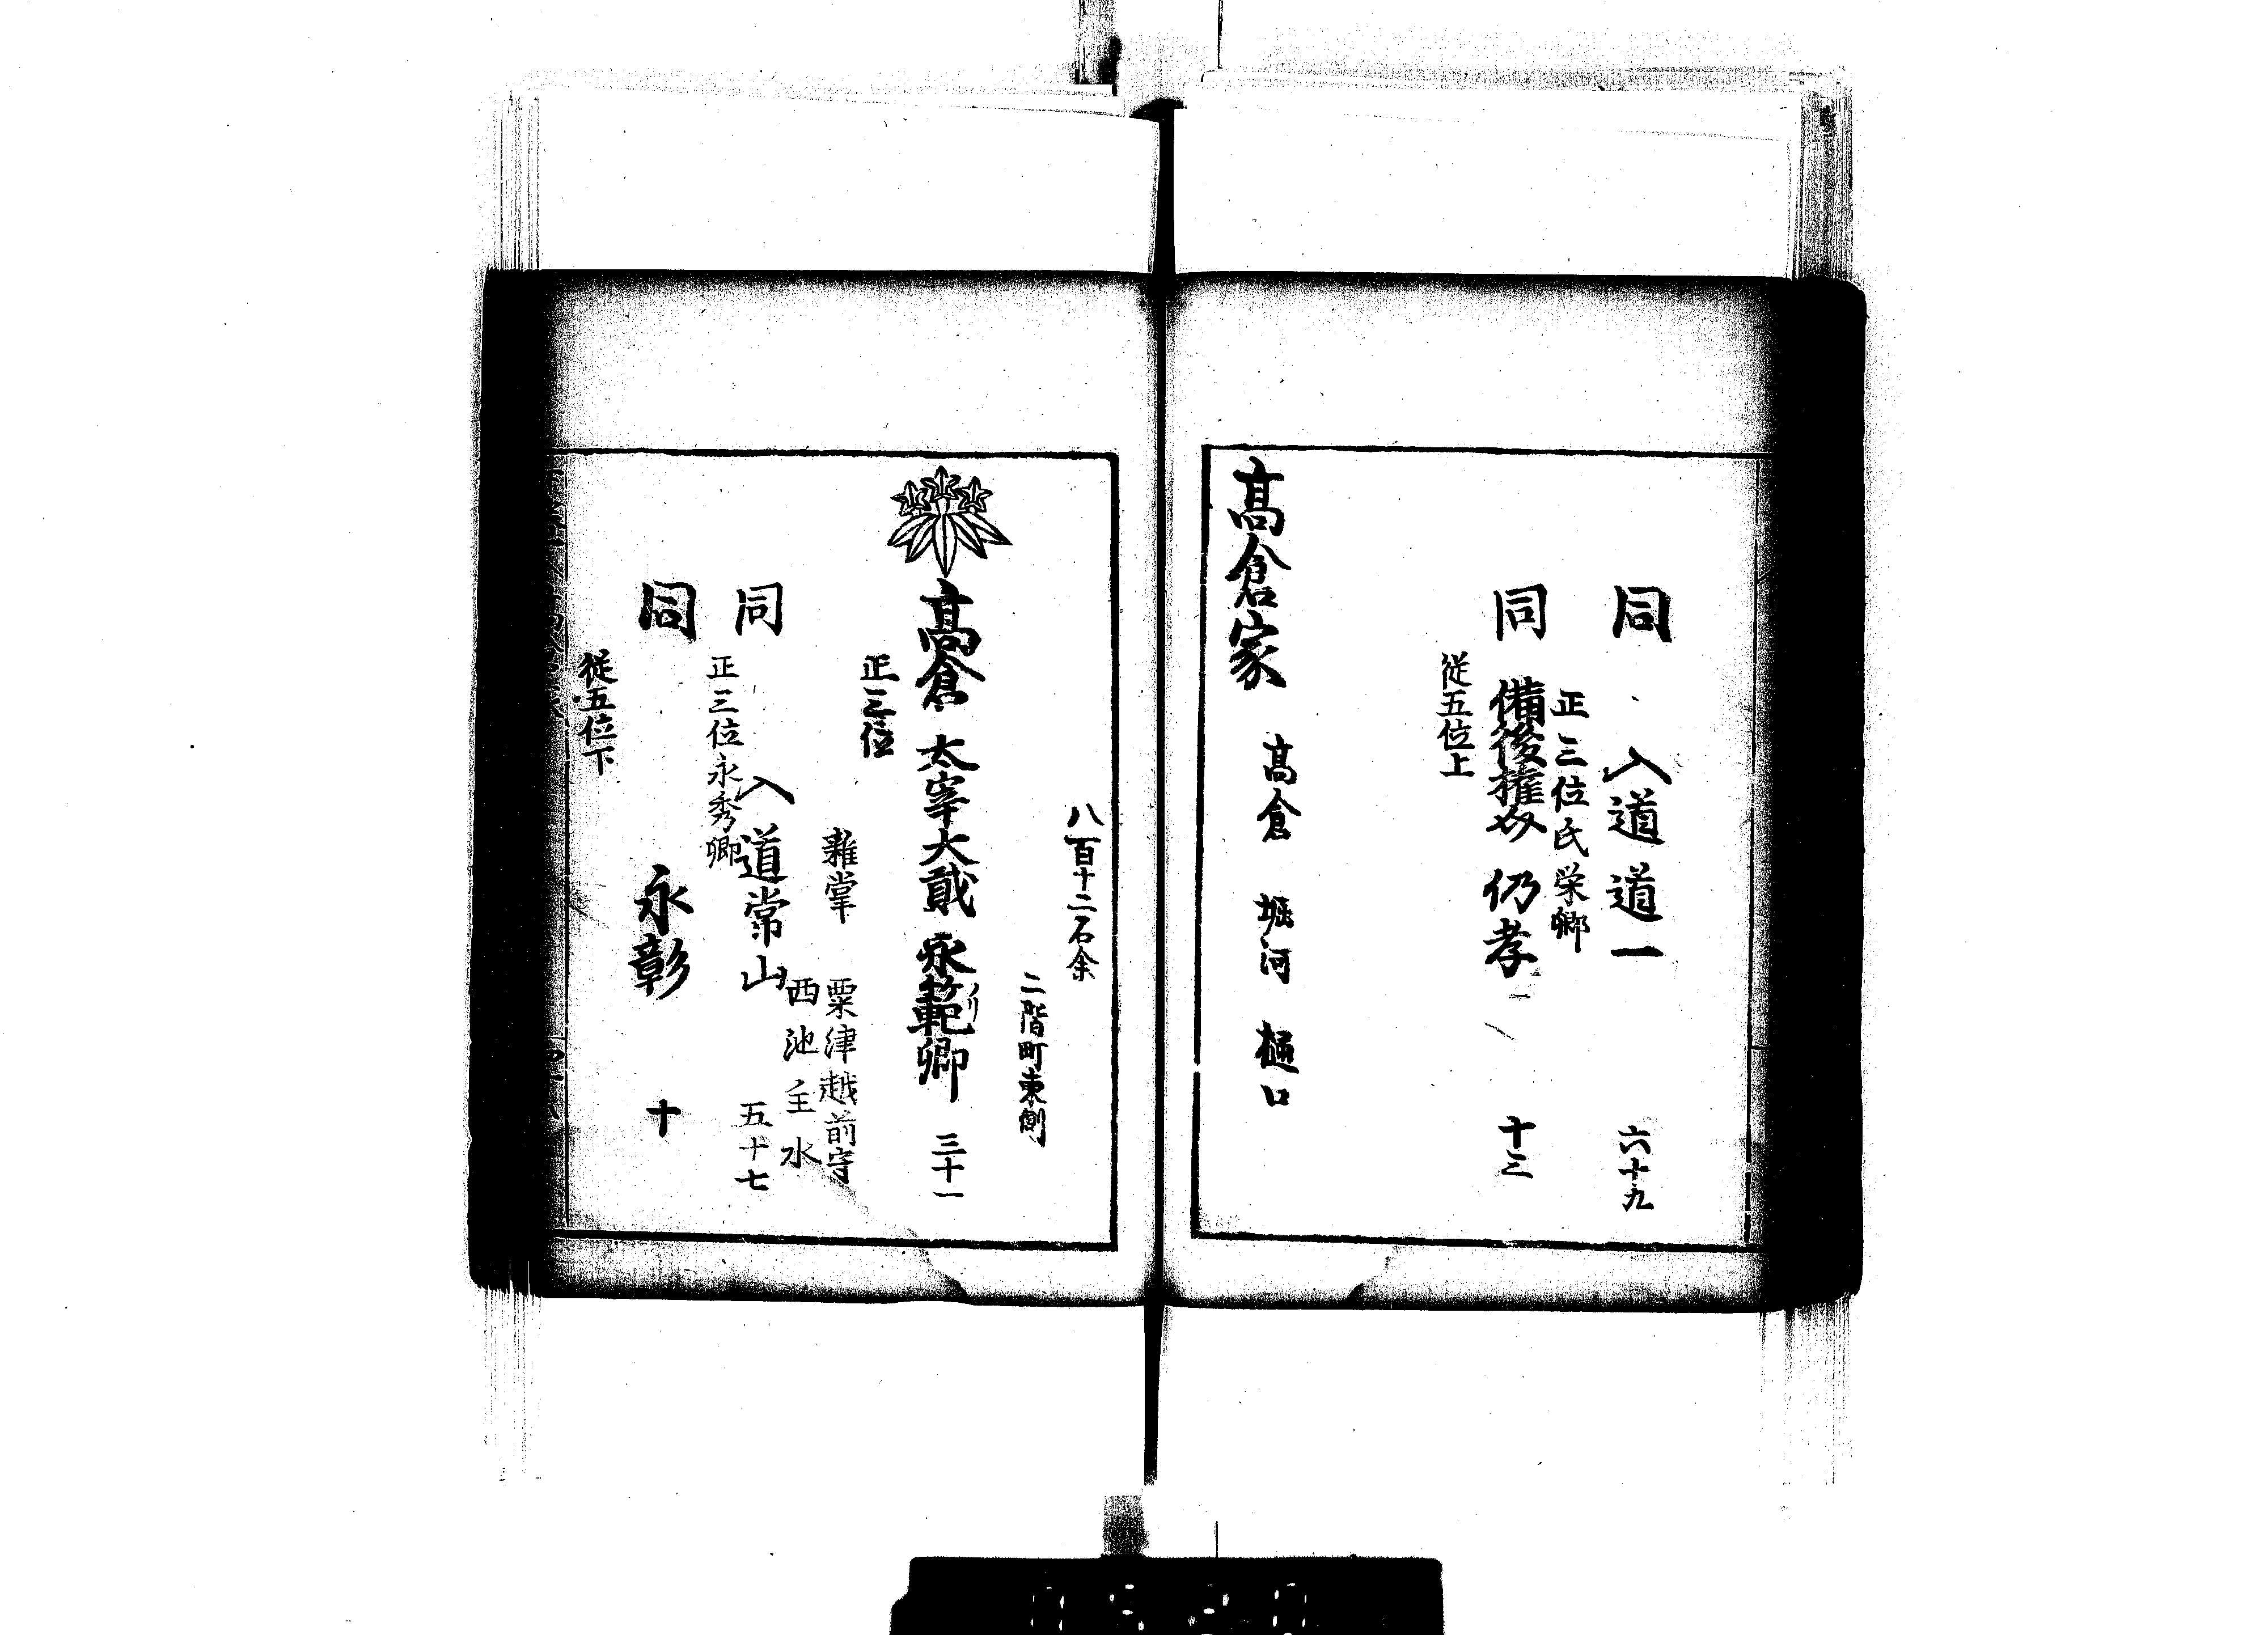 同 入道道一 六十九
正三位氏栄卿
同 備後権介 仍孝 十三
従五位上
髙倉家 髙倉 堀河 樋口
八百十二石余
二階町東側
髙倉 太宰大貳 永範卿 三十一
ノリ
正三位
雜掌 粟津越前守
西池主水
同 入道常山 五十七
正三位永秀卿
同 永彰 十
従五位下